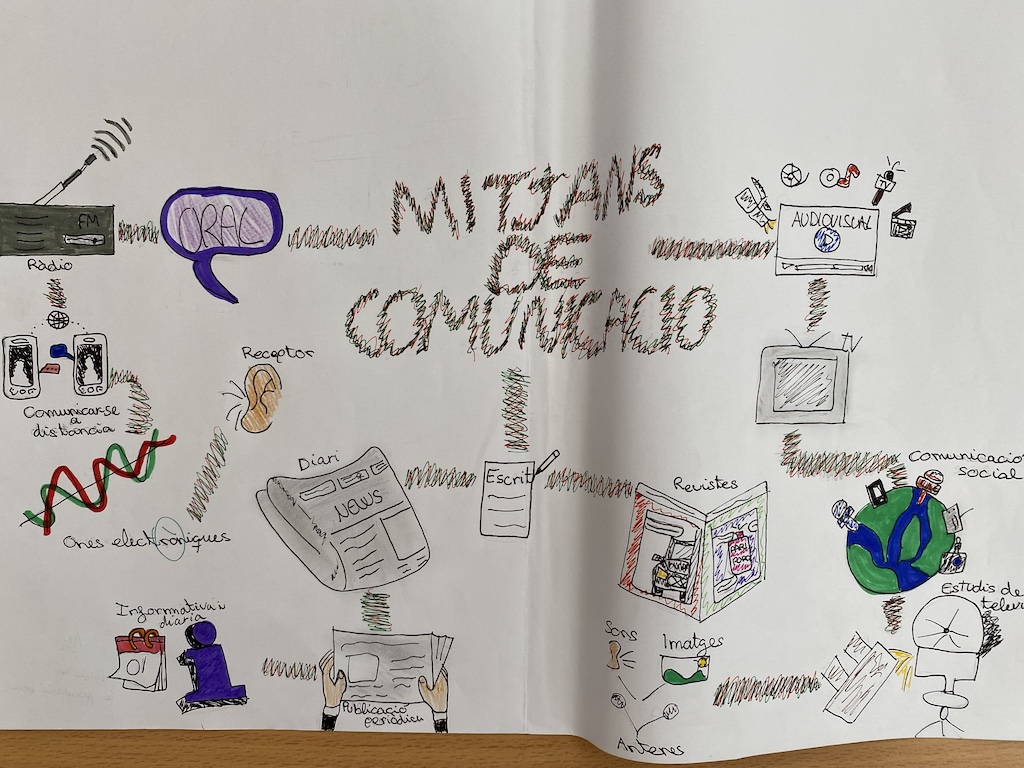 MITJANS
DE
COMUNICACIÓ
ORAL
FM
Ràdio
Comunicar-se
a
distància
Ones electròniques
Receptor
Escrit
Diari
NEWS
Publicació
periòdica
Informativa i
diària
01
Revistes
AUDIOVISUAL
TV
TV
Comunicació
social
Estudis de
Sons
Imatges
Antenes